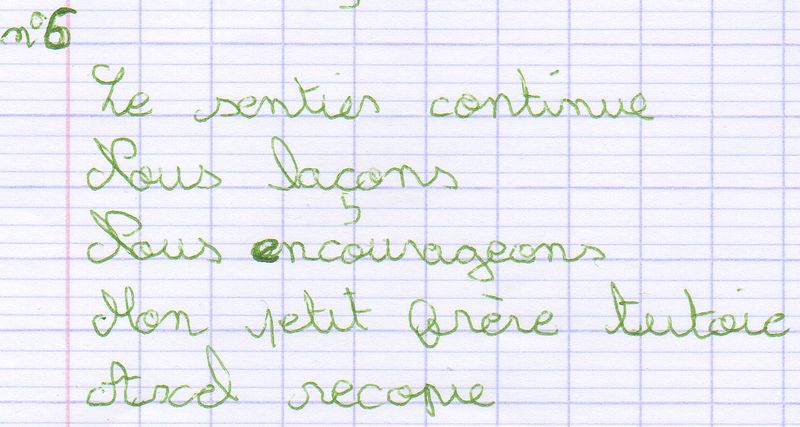 n°6
Le sentier continue
Nous laçons
Nous encourageons
Mon petit frère tutoie
Axel recopie